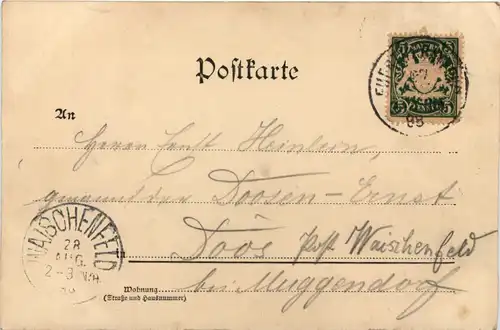 Postkarte
An
Herrn Ernst Heinlein,
genannt den Doosen-Ernst
Doos Post Waischenfeld
bei Muggendorf
Wohnung
(Straße und Hausnummer)
WAISCHENFELD
28
AUG.
2-3 NM
5 5